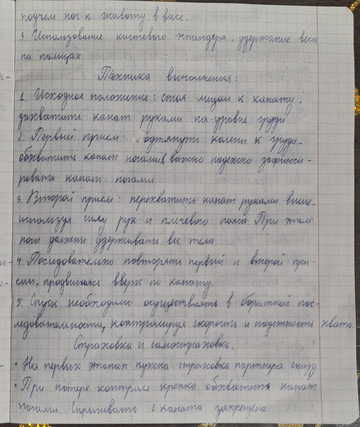 подъем ног к животу в висе.
3. Использование кистевого эспандера, удержание веса
на пальцах.
Техника выполнения:
1. Исходное положение: стоя лицом к канату,
захватить канат руками на уровне груди.
2. Первый прием: подтянуть колени к груди,
обхватить канат ногами (важно надежно зафикси-
ровать канат ногами.
3. Второй прием: перехватить канат руками выше,
используя силу рук и плечевого пояса. При этом
ноги должны удерживать вес тела.
4. Последовательно повторять первый и второй при-
емы, продвигаясь вверх по канату.
5. Спуск необходимо осуществлять в обратной пос-
ледовательности, контролируя скорость и плотность хвата.
Страховка и самостраховка.
• На первых этапах нужна страховка партнера снизу.
• При потере контроля крепко обхватить канат
ногами. Спрыгивать с каната запрещено.